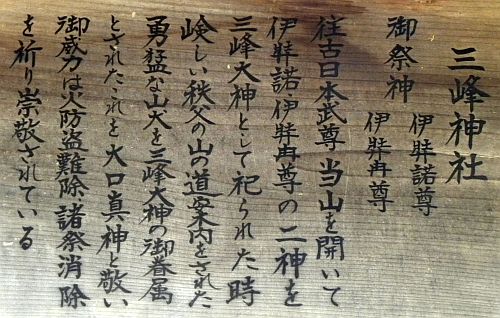 三峰神社
御祭神 伊弉諾尊
伊弉冉尊
往古日本武尊 当山を開いて
伊弉諾伊弉冉尊の二神を
三峰大神として祀られた時
峻しい秩父の山の道案内をされた
勇猛な山犬を三峰大神の御眷属
とされたこれを大口真神と敬い
御威力は火防盗難除諸祭消除
を祈り崇敬されている